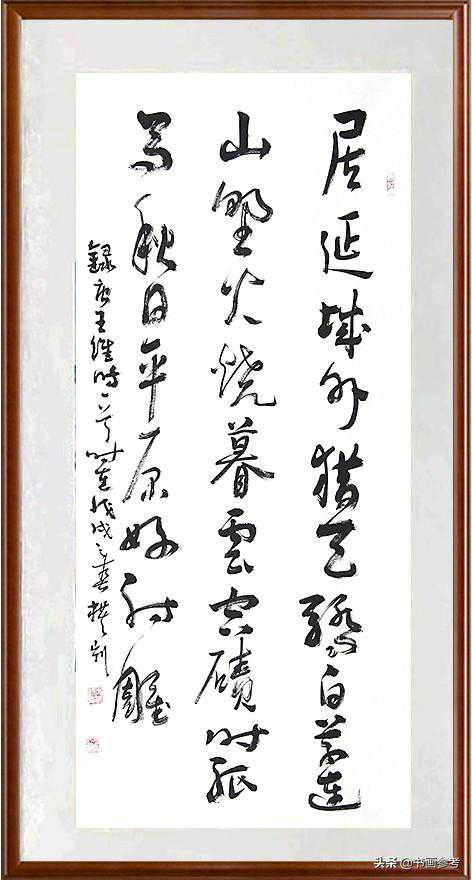 居延城外猎天驕白草連
山野火燒暮雲空磧时驱
馬秋日平原好射雕
録唐王維詩一首时在戊戌之春
头条 @书画参考